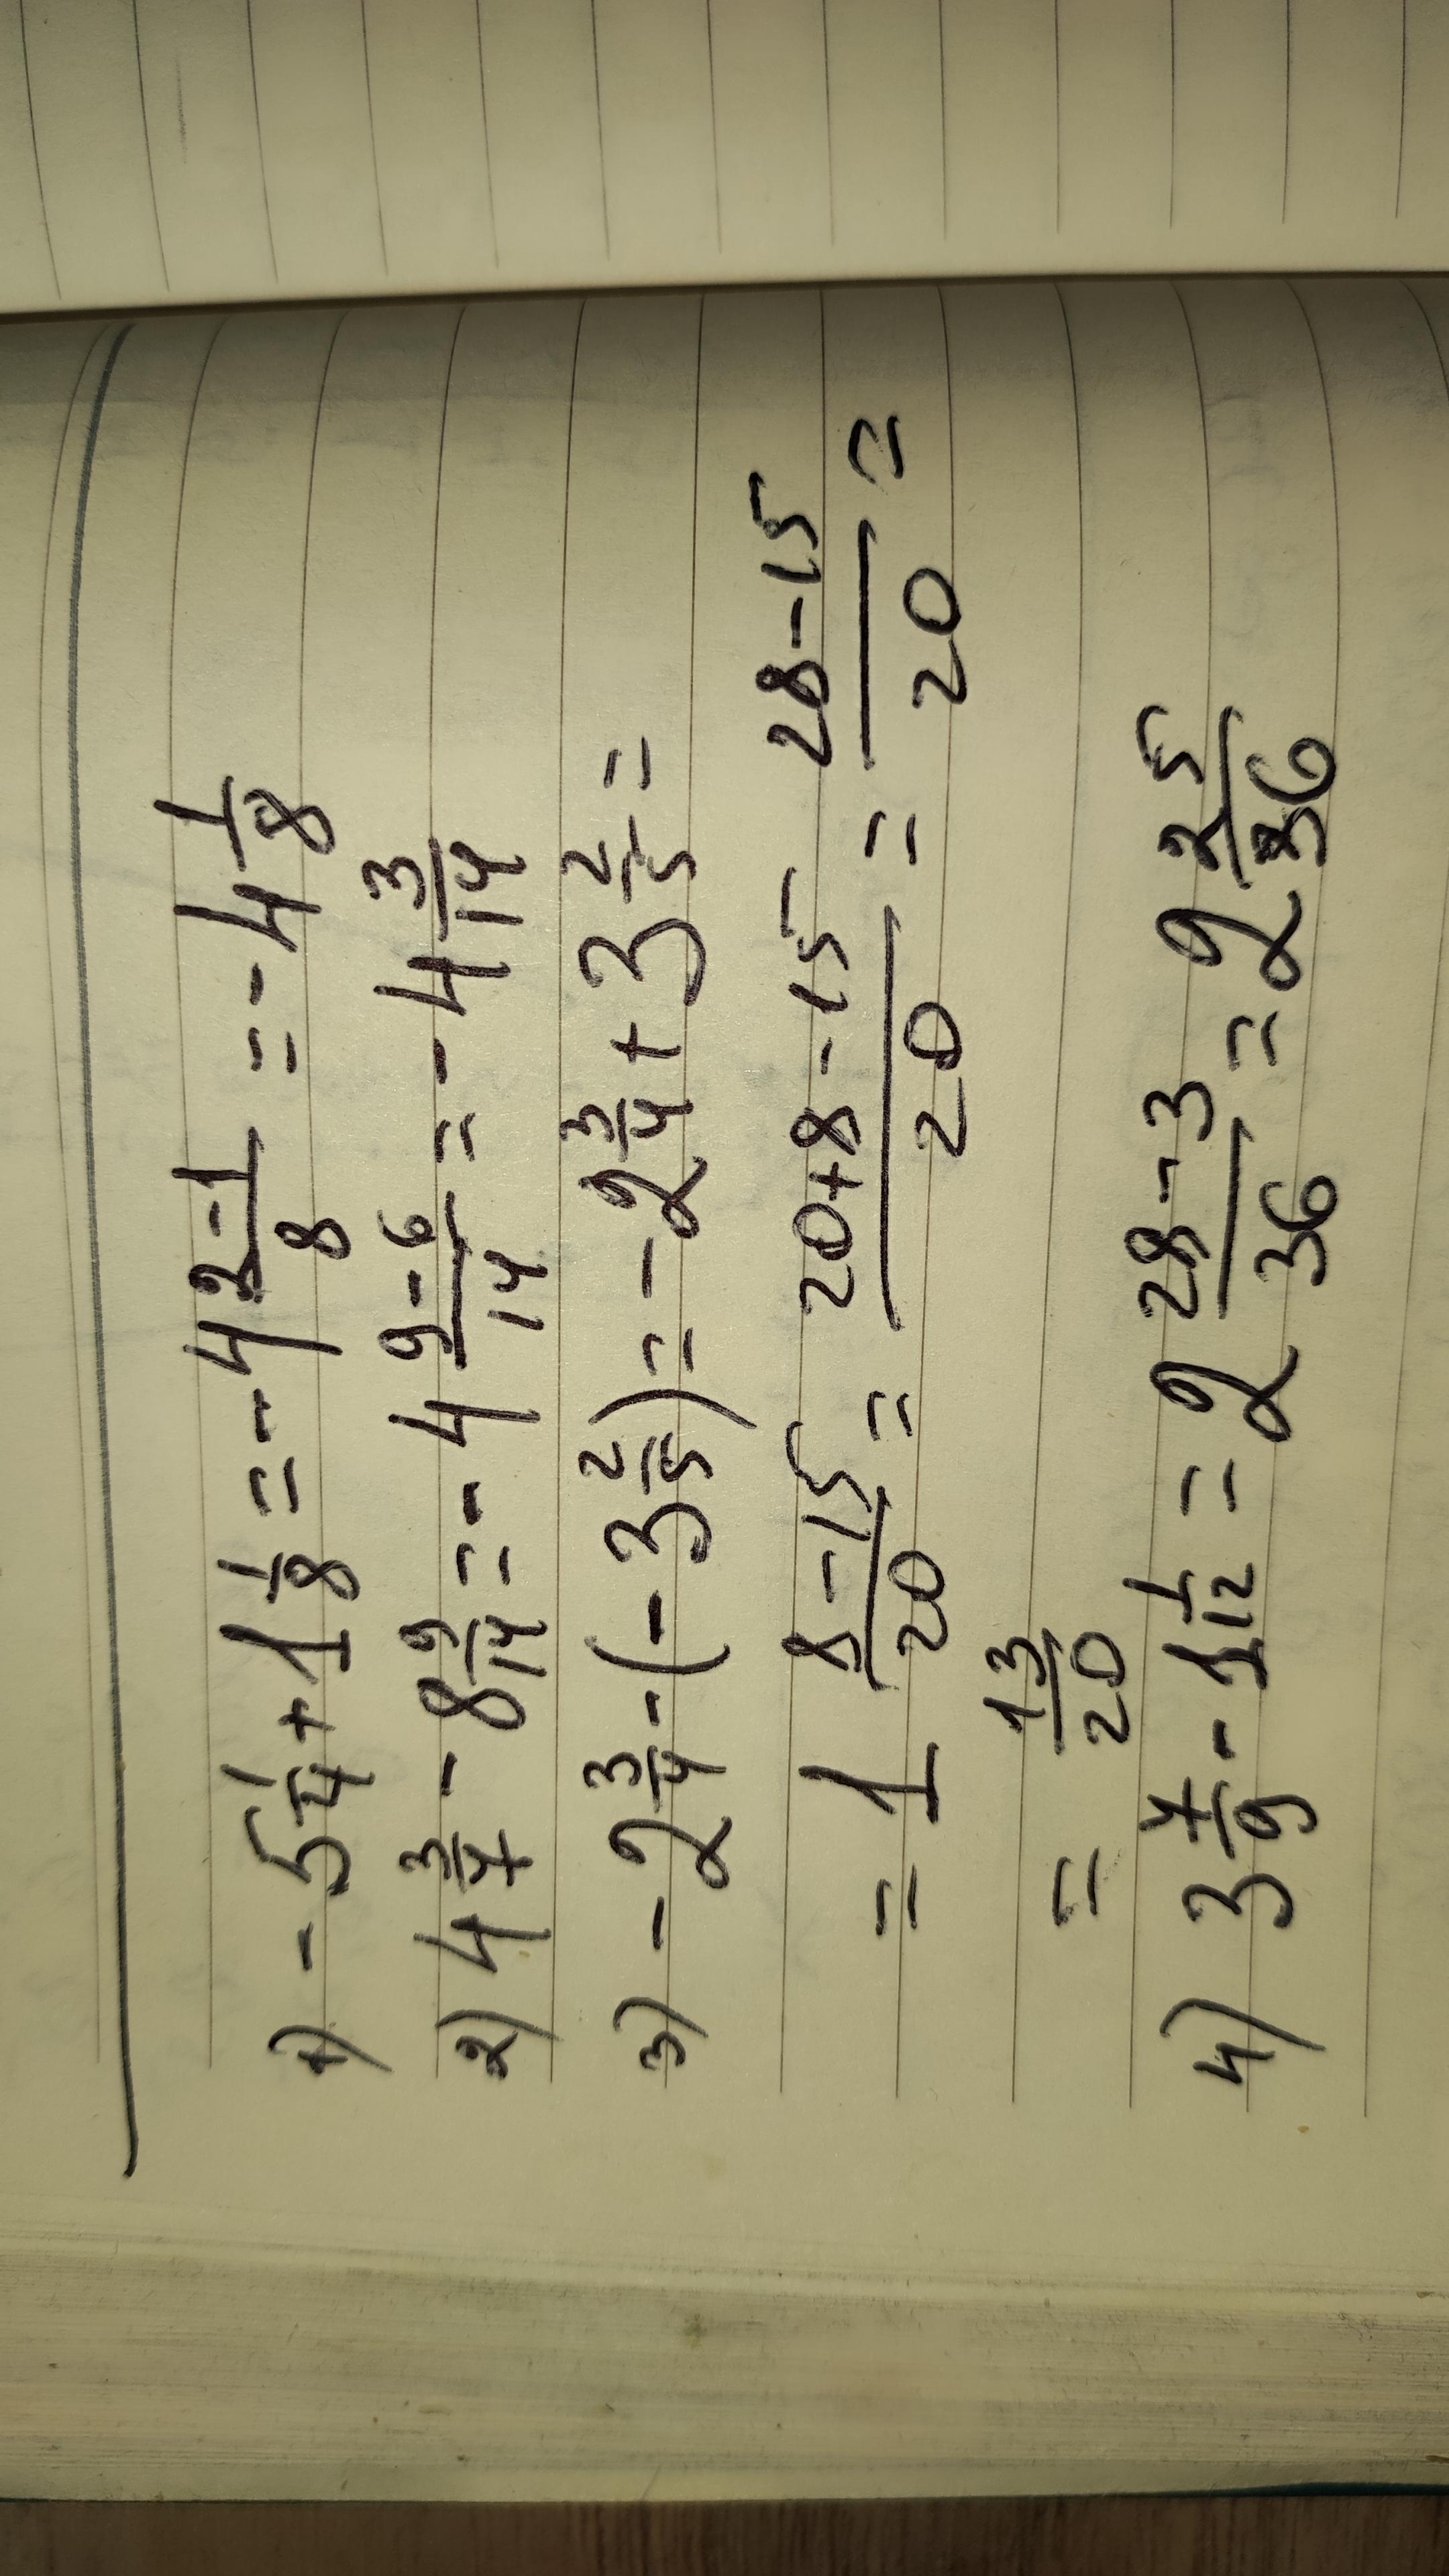 1) - 5 1/4 + 1 1/8 = - 4 2-1/8 = - 4 1/8
2) 4 3/7 - 8 9/14 = - 4 9-6/14 = - 4 3/14
3) - 2 3/4 - (- 3 2/5) = - 2 3/4 + 3 2/5 =
= 1 8-15/20 = 20+8-15/20 = 28-15/20 =
= 13/20
4) 3 7/9 - 1 1/12 = 2 28-3/36 = 2 25/36